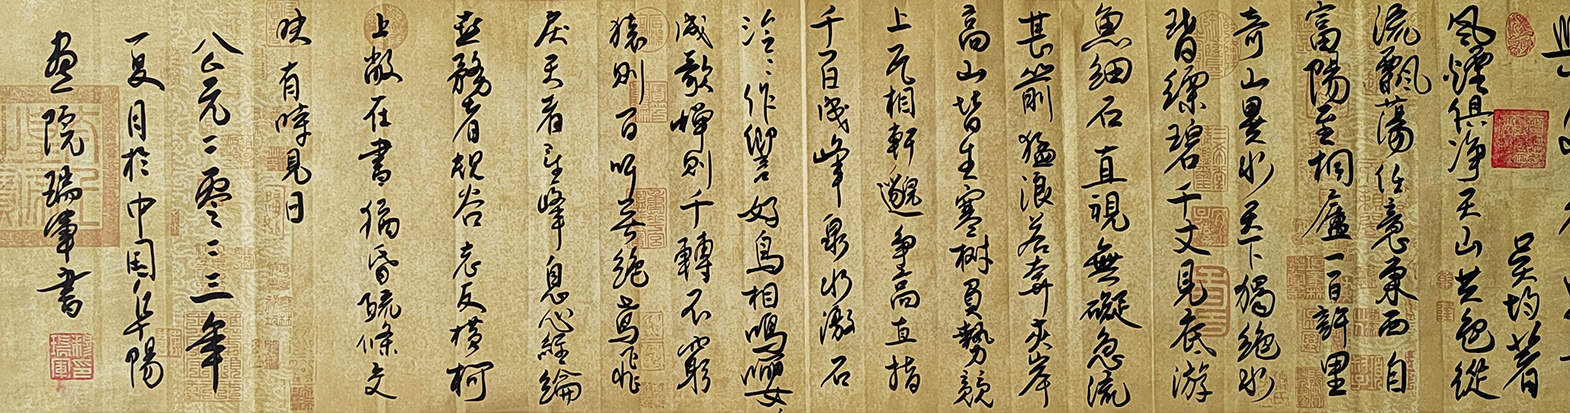 吳均著
風煙俱净天山共色從
流飄蕩任意東西自
富陽至桐廬一百許里
奇山異水天下獨絕水
皆縹碧千丈見底游
魚細石直視無礙急流
甚箭猛浪若奔夾岸
高山皆生寒樹負勢競
上互相軒邈爭高直指
千百成峰泉水激石
泠々作響好鳥相鳴嚶々
成韻蟬則千轉不窮
猿則百叫無絕鳶飛
戾天者望峰息心經綸
世務者窺谷忘反橫柯
上蔽在晝猶昏疏條交
映有時見日
公元二零二三年
夏月於中国阜陽
画院瑞軍書